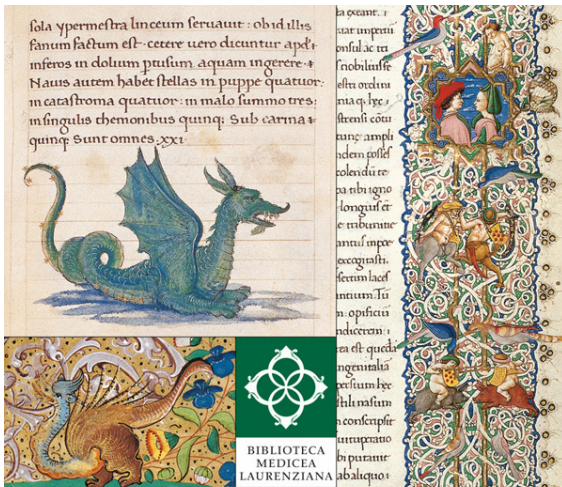 sola ypermestra linceum seruauit : ob id illis
fanum factum est · cetere uero dicuntur
inferos in dolium ptusum aquam ingerere ·
Nauis autem habet stellas in puppe quatuor:
in catastroma quatuor: in malo summo tres:
in singulis themonibus quinq; Sub carina
quinq; Sunt omnes. xxi·
BIBLIOTECA
MEDICEA
LAURENZIANA
ta exeant. i
uar imperiu
onsul ac tri
nobilitisse
estra ordini
nia q; hec
strensi cōtu
tanc ampli
ndem posses
colendū te
pa tibi igno
longius et
e tribunitie
antus impe
excogitasti.
sertim lacef
ntium. Tu
m: opificiū
ndicerem: i
ta est: quedā
ingenitalia
persum hec
stili nasum
n conscripsit
uituperatio
bi putauit
ab aliquo